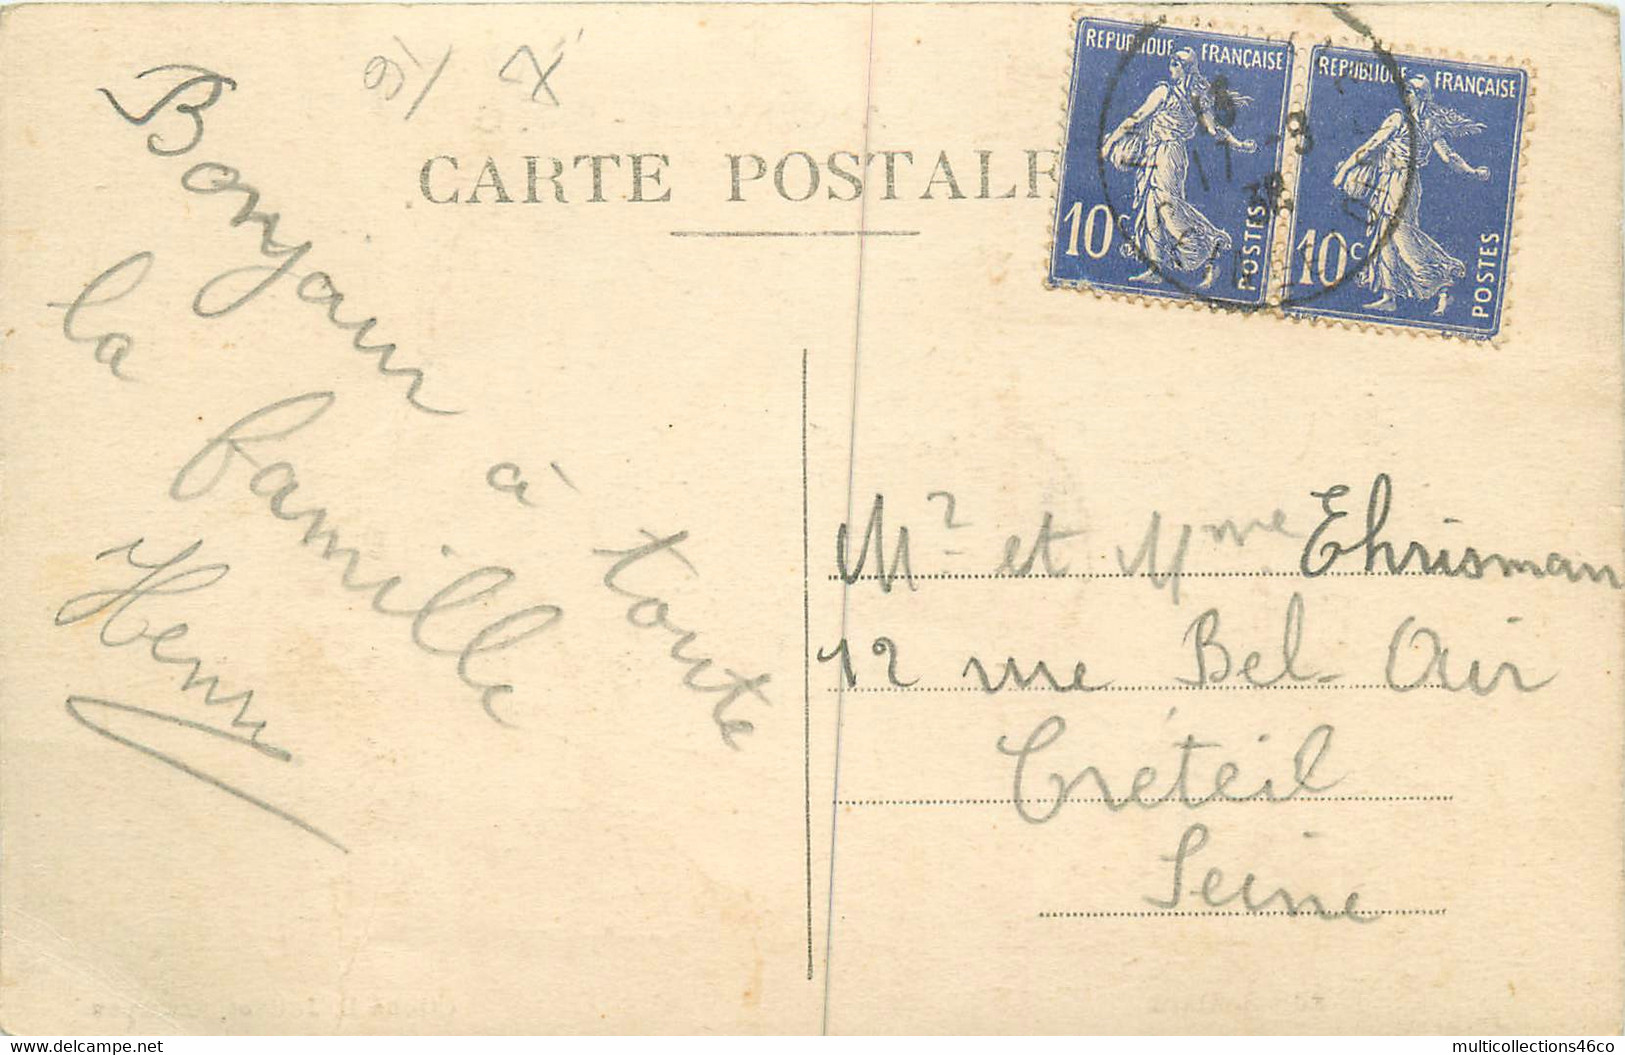 CARTE POSTALE
REPUBLIQUE FRANÇAISE
10c
POSTES
REPUBLIQUE FRANÇAISE
10c
POSTES
17 -8
38
Bonjour à toute
la famille
Henri
Mr et Mme Ehrisman
12 rue Bel-Air
Créteil
Seine
www.delcampe.net
multicollections46co